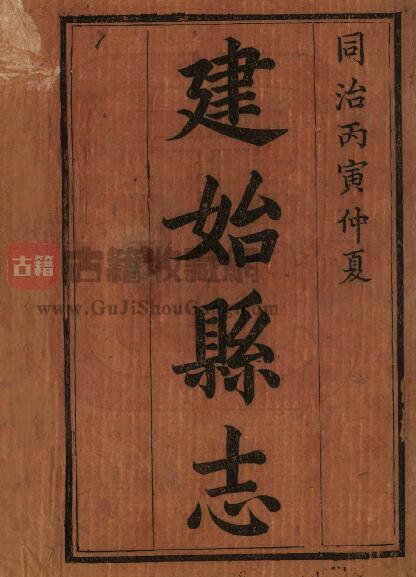 同治丙寅仲夏
建始縣志
古籍
古籍收藏網
www.GuJiShou